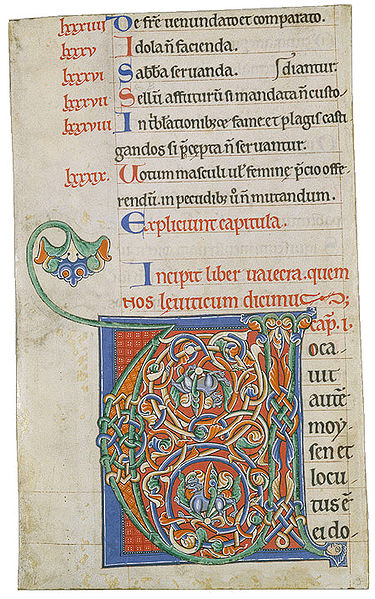 lxxxiiii De fr̄e uenundato et comparato.
lxxxv Idola n̄ facienda.
lxxxvi Sabb̄a seruanda. diantur.
lxxxvii Sellū affuturū si mandata n̄ custo-
lxxxviii In t̄blationibꝫ fame et plagis casti
gandos si p̄cepta n̄ seruantur.
lxxxix. Uotum masculi ul̄ femine p̄cio offe
rendū. in pecudibꝫ u̓ n̄ mutandum.
Expliciunt capitula.
Incipit liber uaiecra. quem
nos leuiticum dicimus;
cap̄. i.
Voca-
uit
autē
moy-
sen et
locu-
tus ē
ei do-